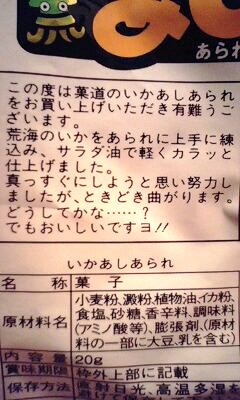 あられ
この度は菓道のいかあしあられ
をお買い上げいただき有難うご
ざいます。
荒海のいかをあられに上手に練
込み、サラダ油で軽くカラッと
仕上げました。
真っすぐにしようと思い努力し
ましたが、ときどき曲がります。
どうしてかな……?
でもおいしいですヨ!!
いかあしあられ
名 称 菓子
原材料名 小麦粉、澱粉、植物油、イカ粉、
食塩、砂糖、香辛料、調味料
(アミノ酸等)、膨張剤、(原材
料の一部に大豆、乳を含む)
内容量 20g
賞味期限 枠外上部に記載
保存方法 直射日光、高温多湿を